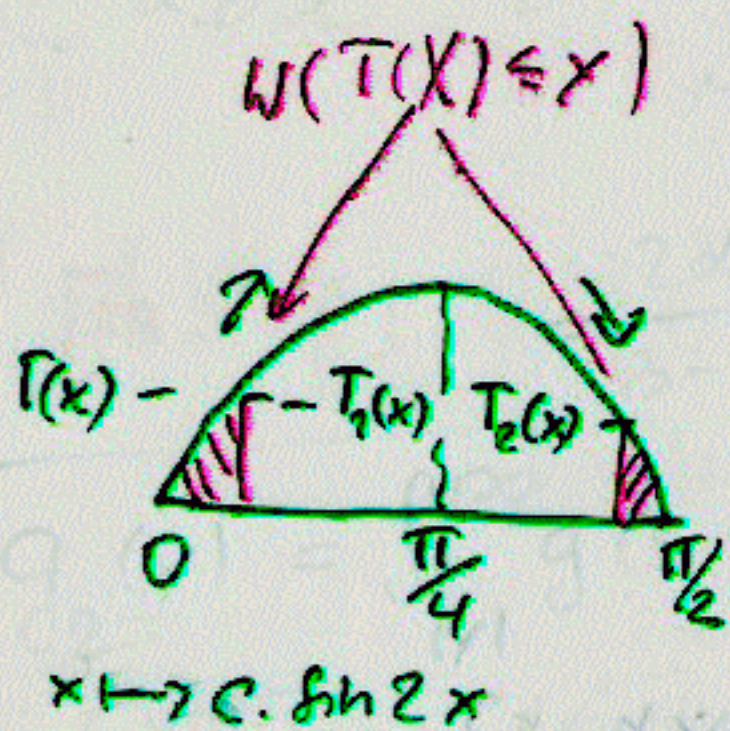 W(T(X) ≤ x)
T(x)
T₁(x) T₂(x)
0 π/4 π/2
x ↦ c. sin 2x